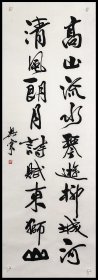 高山流水琴遊柳城河
清風朗月詩賦東獅山